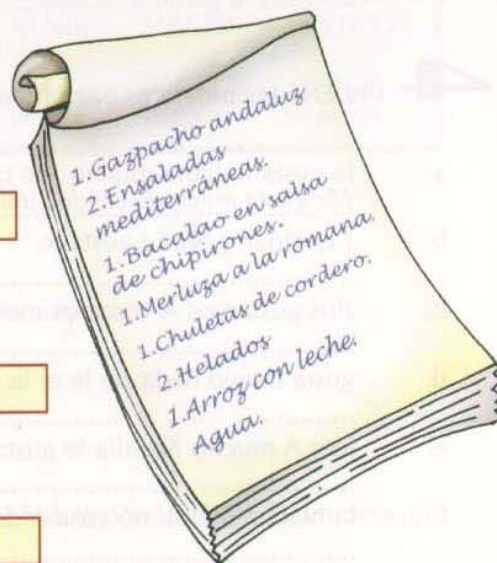 4
1.Gazpacho andaluz.
2.Ensaladas
mediterráneas.
1.Bacalao en salsa
de chipirones.
1.Merluza a la romana.
1.Chuletas de cordero.
2.Helados
1.Arroz con leche.
Agua.